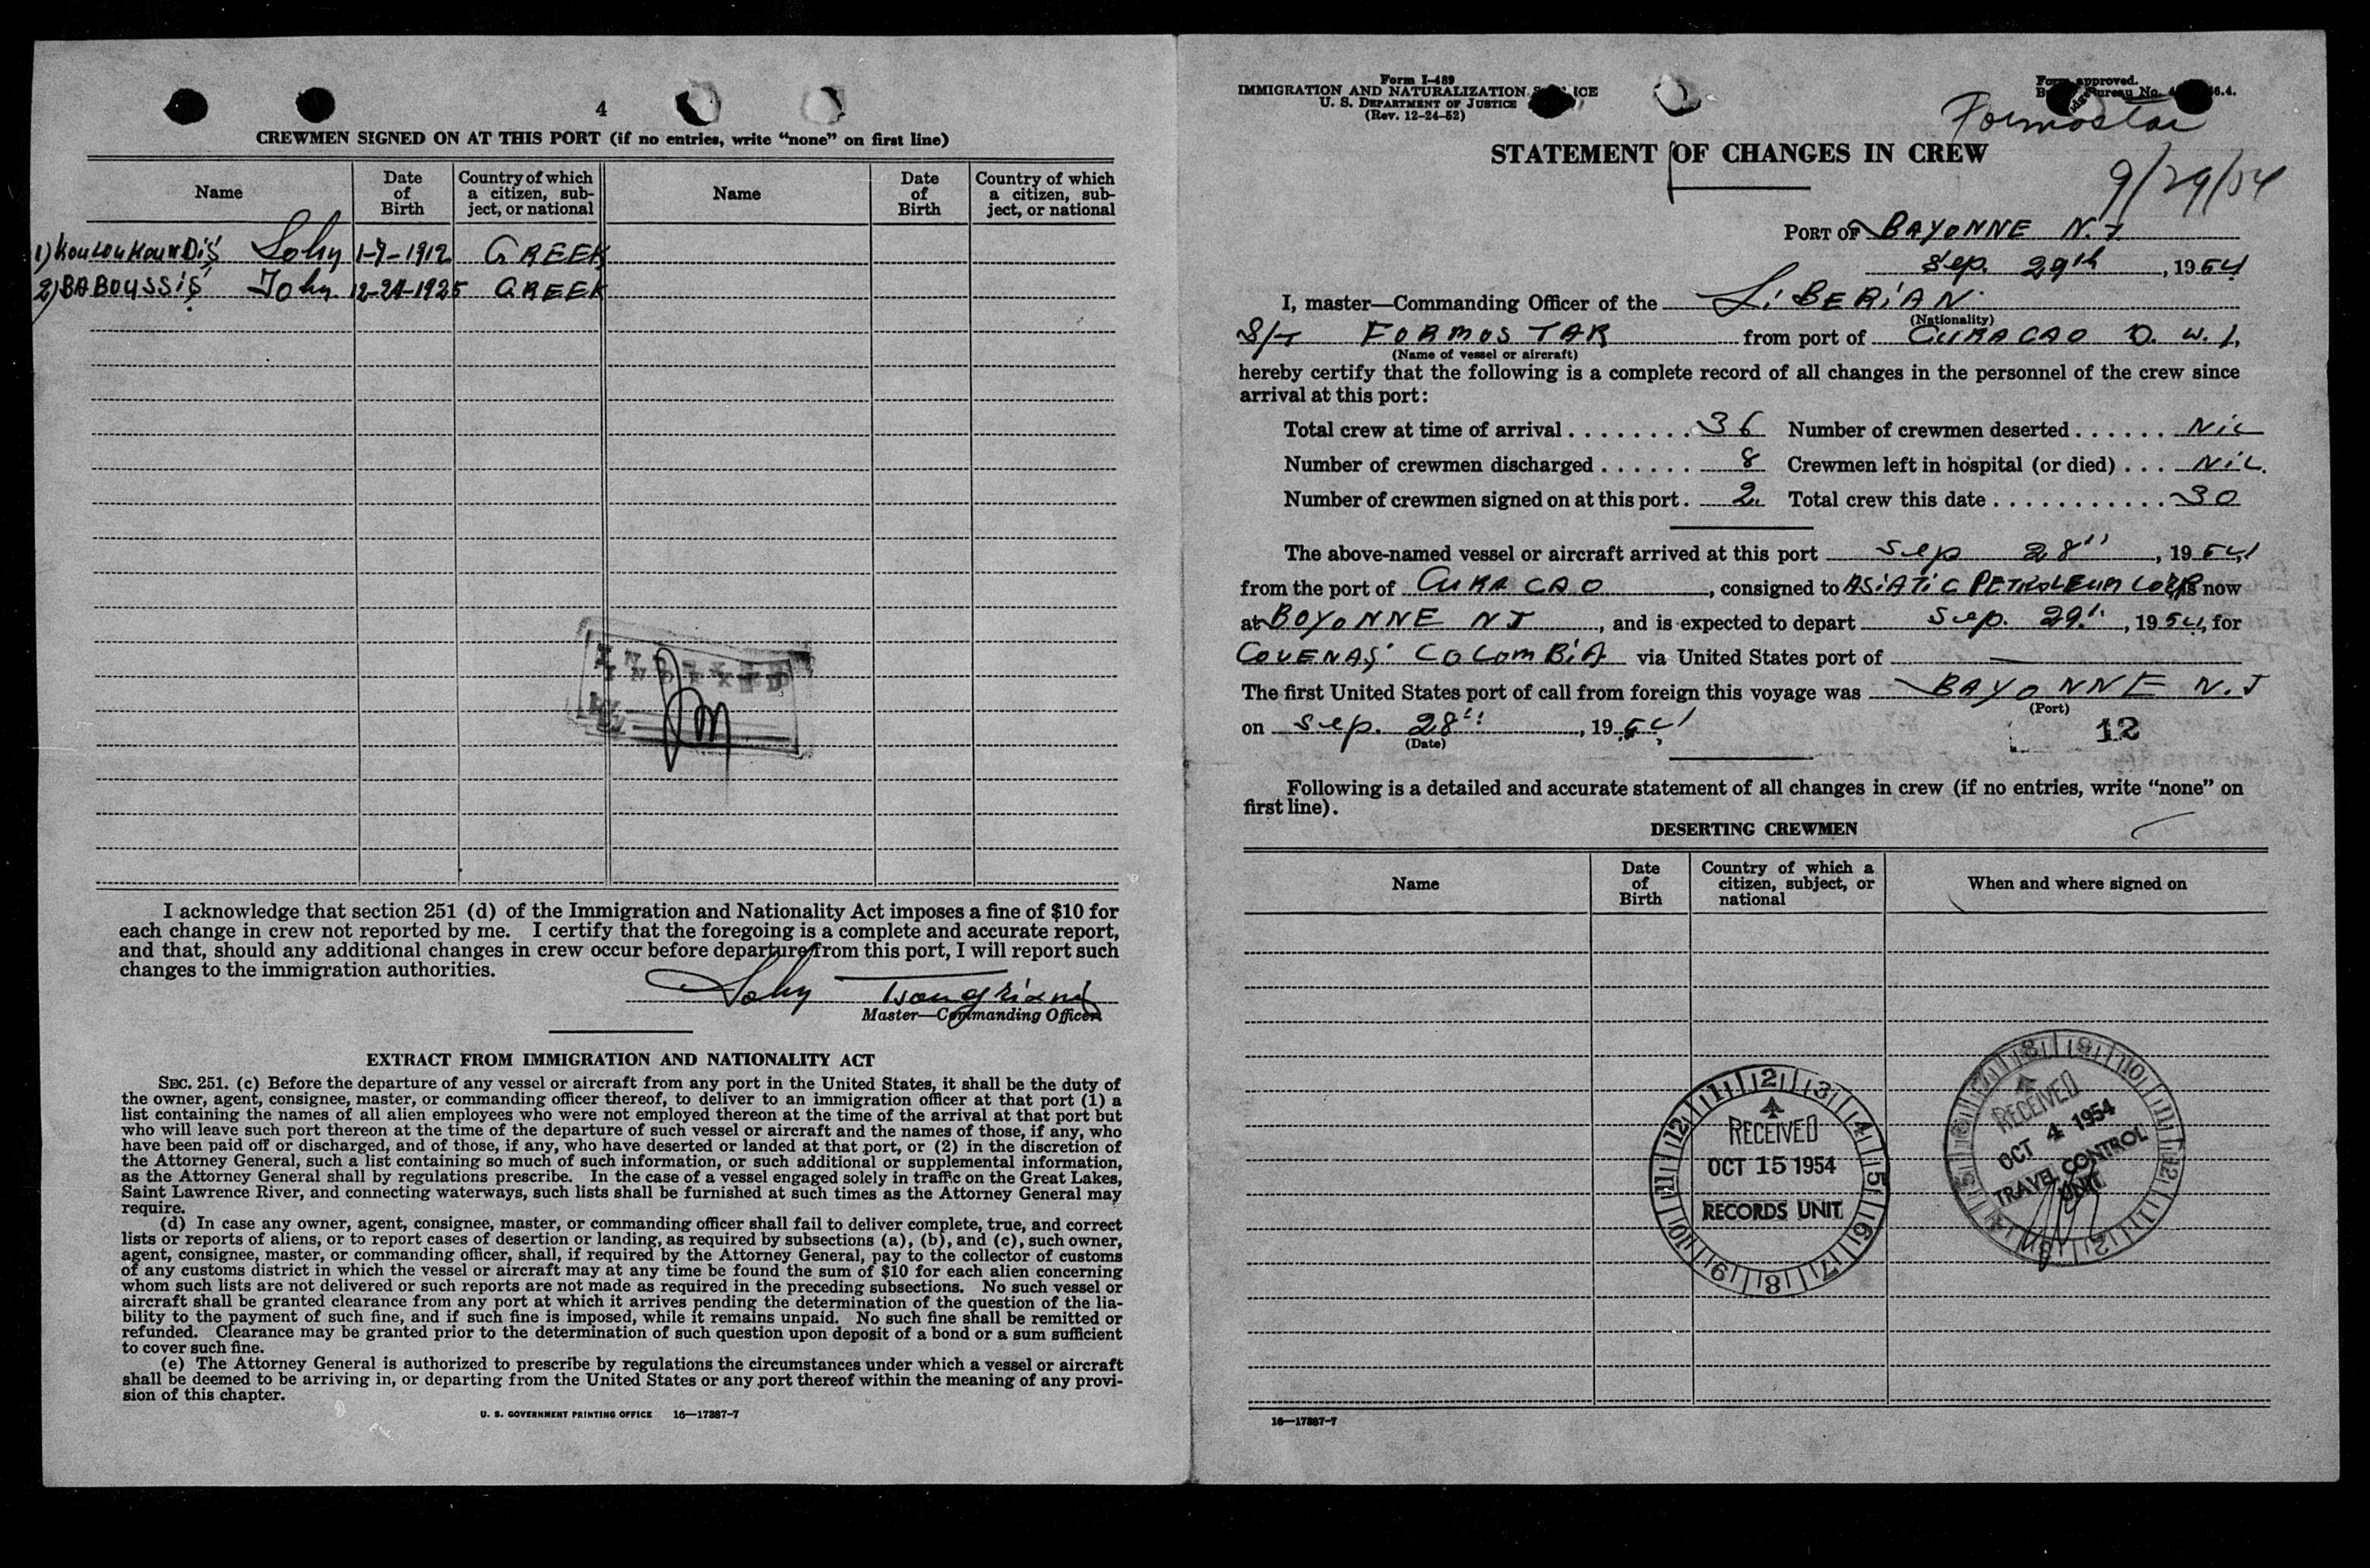 4
CREWMEN SIGNED ON AT THIS PORT (if no entries, write "none" on first line)
Name
Date of Birth
Country of which a citizen, subject, or national
Name
Date of Birth
Country of which a citizen, subject, or national
1) KOULOUKOUNDIS John 1-7-1912 GREEK
2) BABOUSSIS John 12-24-1925 GREEK
INDEXED
I acknowledge that section 251 (d) of the Immigration and Nationality Act imposes a fine of $10 for
each change in crew not reported by me. I certify that the foregoing is a complete and accurate report,
and that, should any additional changes in crew occur before departure from this port, I will report such
changes to the immigration authorities.
John
Master—Commanding Officer
EXTRACT FROM IMMIGRATION AND NATIONALITY ACT
SEC. 251. (c) Before the departure of any vessel or aircraft from any port in the United States, it shall be the duty of
the owner, agent, consignee, master, or commanding officer thereof, to deliver to an immigration officer at that port (1) a
list containing the names of all alien employees who were not employed thereon at the time of the arrival at that port but
who will leave such port thereon at the time of the departure of such vessel or aircraft and the names of those, if any, who
have been paid off or discharged, and of those, if any, who have deserted or landed at that port, or (2) in the discretion of
the Attorney General, such a list containing so much of such information, or such additional or supplemental information,
as the Attorney General shall by regulations prescribe. In the case of a vessel engaged solely in traffic on the Great Lakes,
Saint Lawrence River, and connecting waterways, such lists shall be furnished at such times as the Attorney General may
require.
(d) In case any owner, agent, consignee, master, or commanding officer shall fail to deliver complete, true, and correct
lists or reports of aliens, or to report cases of desertion or landing, as required by subsections (a), (b), and (c), such owner,
agent, consignee, master, or commanding officer, shall, if required by the Attorney General, pay to the collector of customs
of any customs district in which the vessel or aircraft may at any time be found the sum of $10 for each alien concerning
whom such lists are not delivered or such reports are not made as required in the preceding subsections. No such vessel or
aircraft shall be granted clearance from any port at which it arrives pending the determination of the question of the lia-
bility to the payment of such fine, and if such fine is imposed, while it remains unpaid. No such fine shall be remitted or
refunded. Clearance may be granted prior to the determination of such question upon deposit of a bond or a sum sufficient
to cover such fine.
(e) The Attorney General is authorized to prescribe by regulations the circumstances under which a vessel or aircraft
shall be deemed to be arriving in, or departing from the United States or any port thereof within the meaning of any provi-
sion of this chapter.
U. S. GOVERNMENT PRINTING OFFICE 16—17387-7
Form I-489
IMMIGRATION AND NATURALIZATION
U. S. DEPARTMENT OF JUSTICE
(Rev. 12-24-52)
Form approved.
Bureau No. 6.4.
Formostar
9/29/54
STATEMENT OF CHANGES IN CREW
PORT OF BAYONNE N.J
Sep. 29th, 1954
I, master—Commanding Officer of the LIBERIAN
(Nationality)
S/T FORMOSTAR from port of CURACAO D. W. I,
(Name of vessel or aircraft)
hereby certify that the following is a complete record of all changes in the personnel of the crew since
arrival at this port:
Total crew at time of arrival . . . . . . . . 36 Number of crewmen deserted . . . . . . Nil
Number of crewmen discharged . . . . . . 8 Crewmen left in hospital (or died) . . . Nil.
Number of crewmen signed on at this port . 2. Total crew this date . . . . . . . . . . . 30
The above-named vessel or aircraft arrived at this port Sep 28", 1954
from the port of CURACAO, consigned to ASIATIC PETROLEUM CORP is now
at BOYONNE NJ, and is expected to depart Sep. 29", 1954, for
COVENAS COLOMBIA via United States port of —
The first United States port of call from foreign this voyage was BAYONNE N.J
(Port)
on Sep. 28", 1954
(Date)
12
Following is a detailed and accurate statement of all changes in crew (if no entries, write "none" on
first line).
DESERTING CREWMEN
Name
Date of Birth
Country of which a citizen, subject, or national
When and where signed on
RECEIVED
OCT 15 1954
RECORDS UNIT
RECEIVED
OCT 4 1954
TRAVEL CONTROL
UNIT
16—17387-7